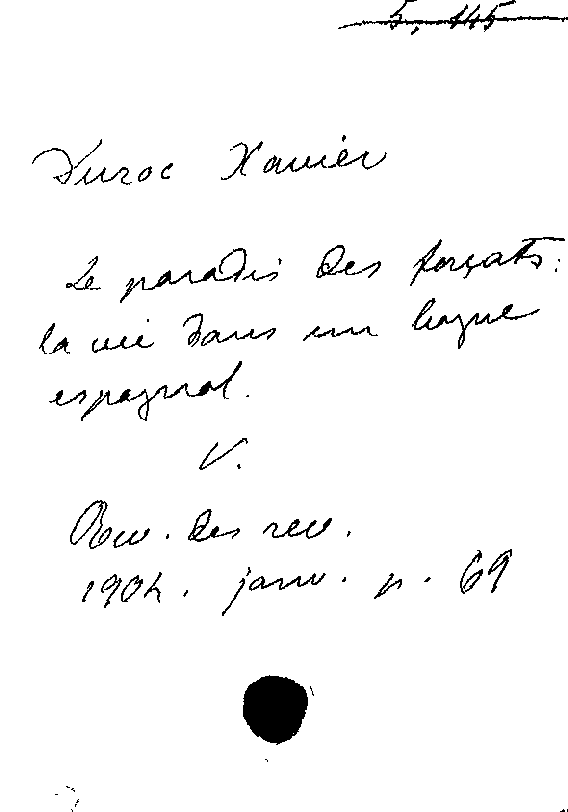 5. 145
Duroc Xavier
Le paradis des forçats :
la vie dans un bagne
espagnol.
V.
Rev. des rev.
1904. janv. p. 69